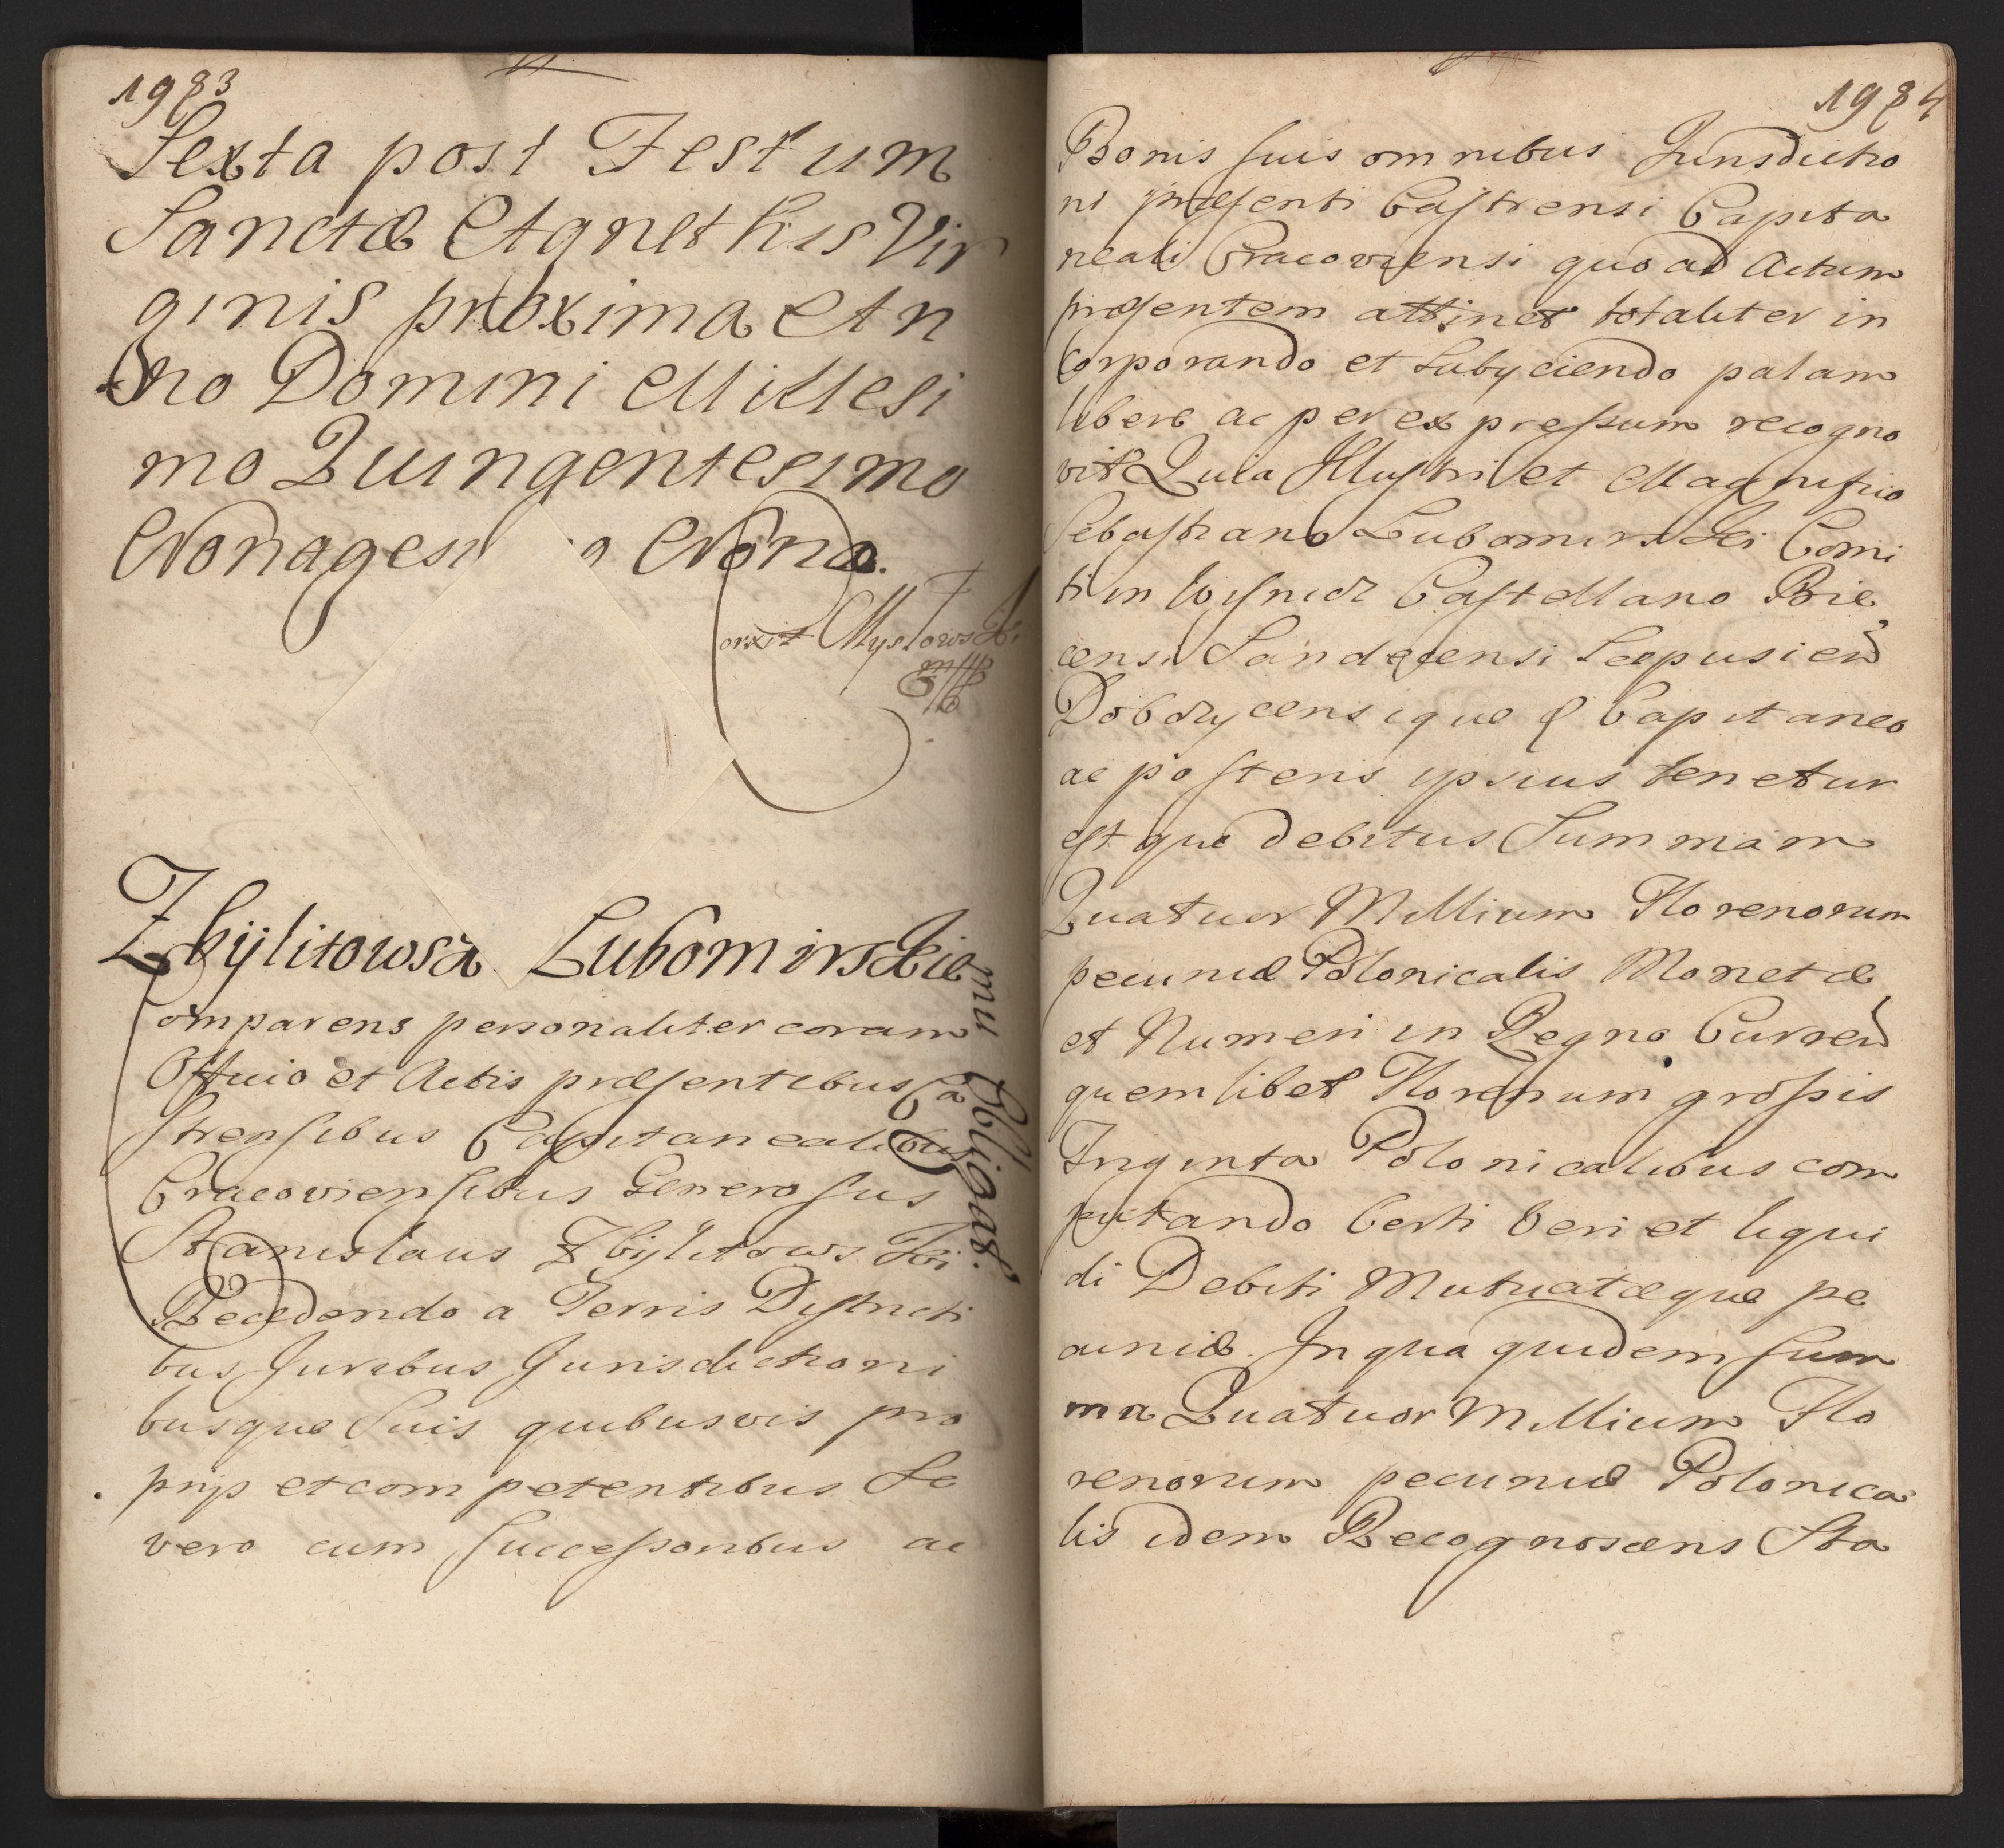 1983
Sexta post Festum
Sanctæ Agnethis Vir
ginis proxima An
no Domini Millesi
mo Quingentesimo
Nonagesi o Nono.
Correxit Mysłowski
mpp
Zbÿlitowsci Lubomirskie
mu Obligat.
Comparens personaliter coram
Officio et Actis præsentibus Ca
strensibus Capitanealibus
Cracoviensibus Generosus
Stanislaus Zbÿlitowski
Recedendo a Terris Districti
bus Juribus Jurisdictioni
busque Suis quibusvis pro
prijs et competentibus Se
vero cum Successoribus ac
1984
Bonis suis omnibus Jurisdictio
ni præsenti Castrensi Capita
neali Cracoviensi quo ad Actum
præsentem attinet totaliter in
corporando et Subyciendo palam
libere ac per expressum recogno
vit Quia Illustri et Magnifico
Sebastiano Lubomirski Comi
ti in Wisnicz Castellano Bie
censi Sandecensi Scepusien
Dobczycensique & Capitaneo
ac posteris ipsius tenetur
est que debitus Summam
Quatuor Millium Florenorum
pecuniæ Polonicalis Monetæ
et Numeri in Regno Curren
quemlibet Florenum grossis
Triginta Polonicalibus com
putando Certi Veri et liqui
di Debiti Mutuatæque pe
cuniæ. In qua quidem Sum
ma Quatuor Millium Flo
renorum pecuniæ Polonica
lis idem Recognoscens Sta